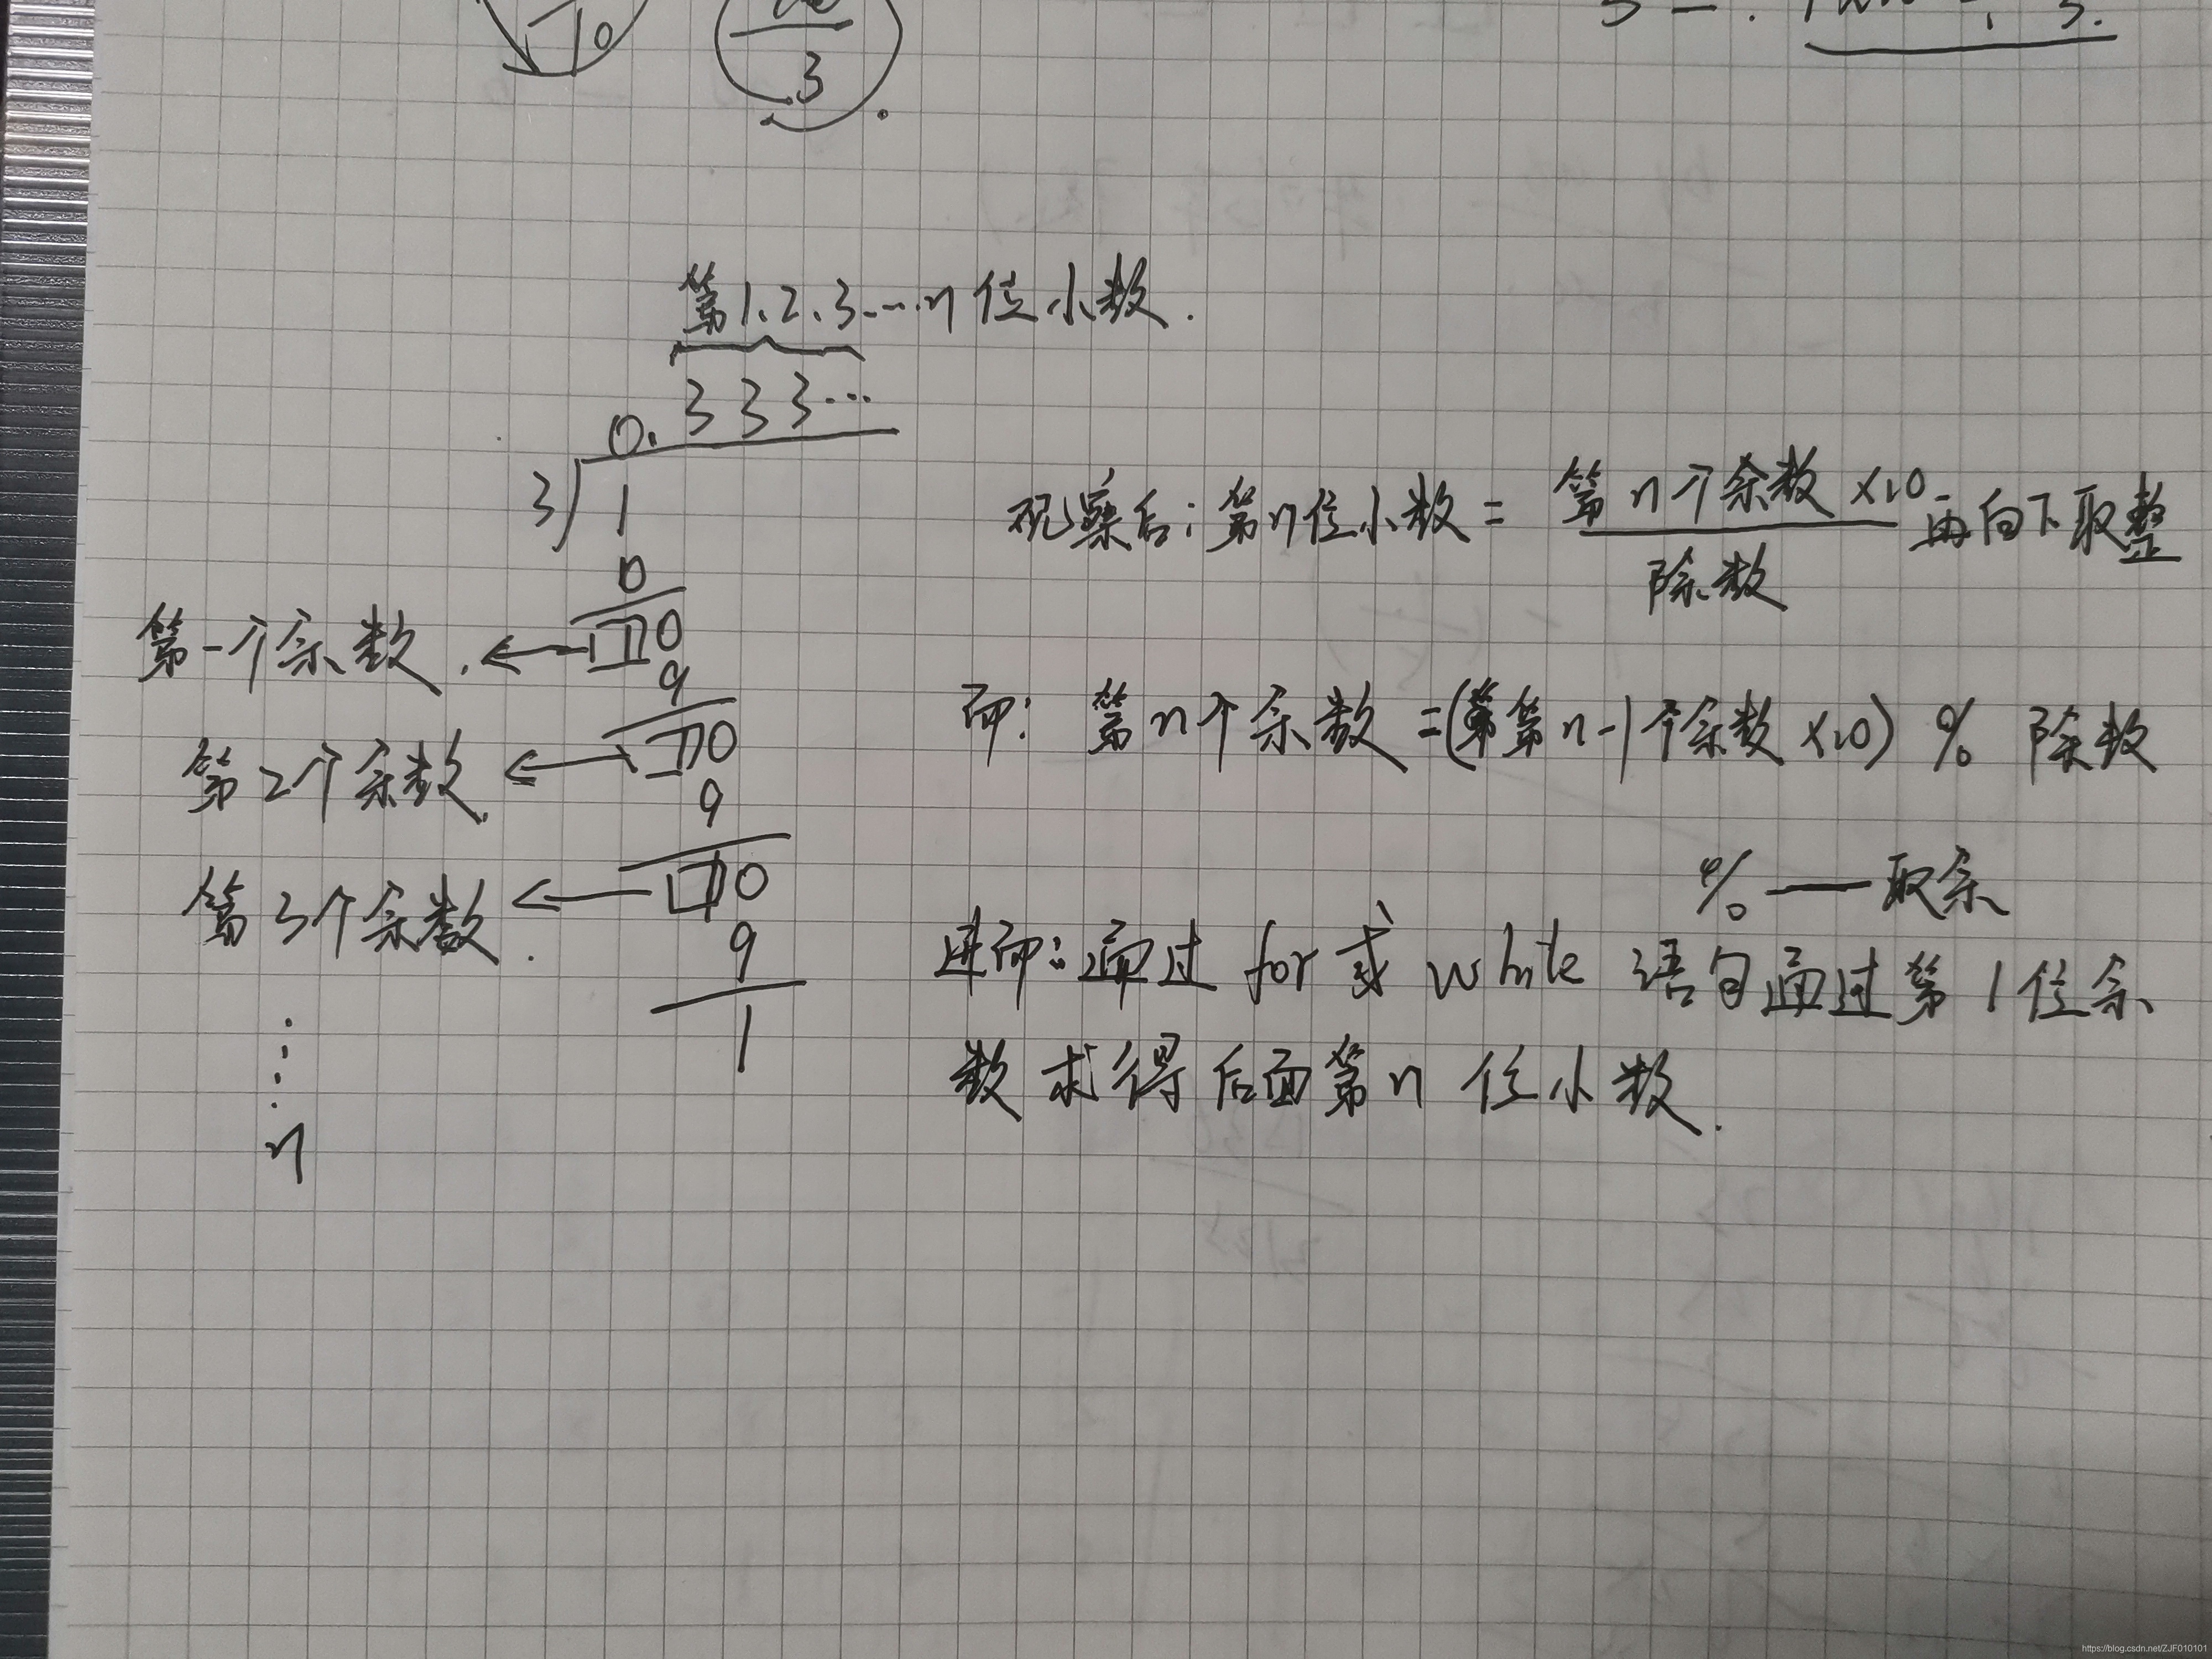 10
3
3
第1.2.3....n位小数.
0.333...
3 1
观察后:第n位小数= 第n个余数×10 再向下取整
除数
0
第一个余数. ← 10
9
而: 第n个余数=(第n-1个余数×10) % 除数
第2个余数. ← 10
9
%——取余
第3个余数. ← 10
9
进而:通过for或while语句通过第1位余
1
数求得后面第n位小数.
n
https://blog.csdn.net/ZJF010101